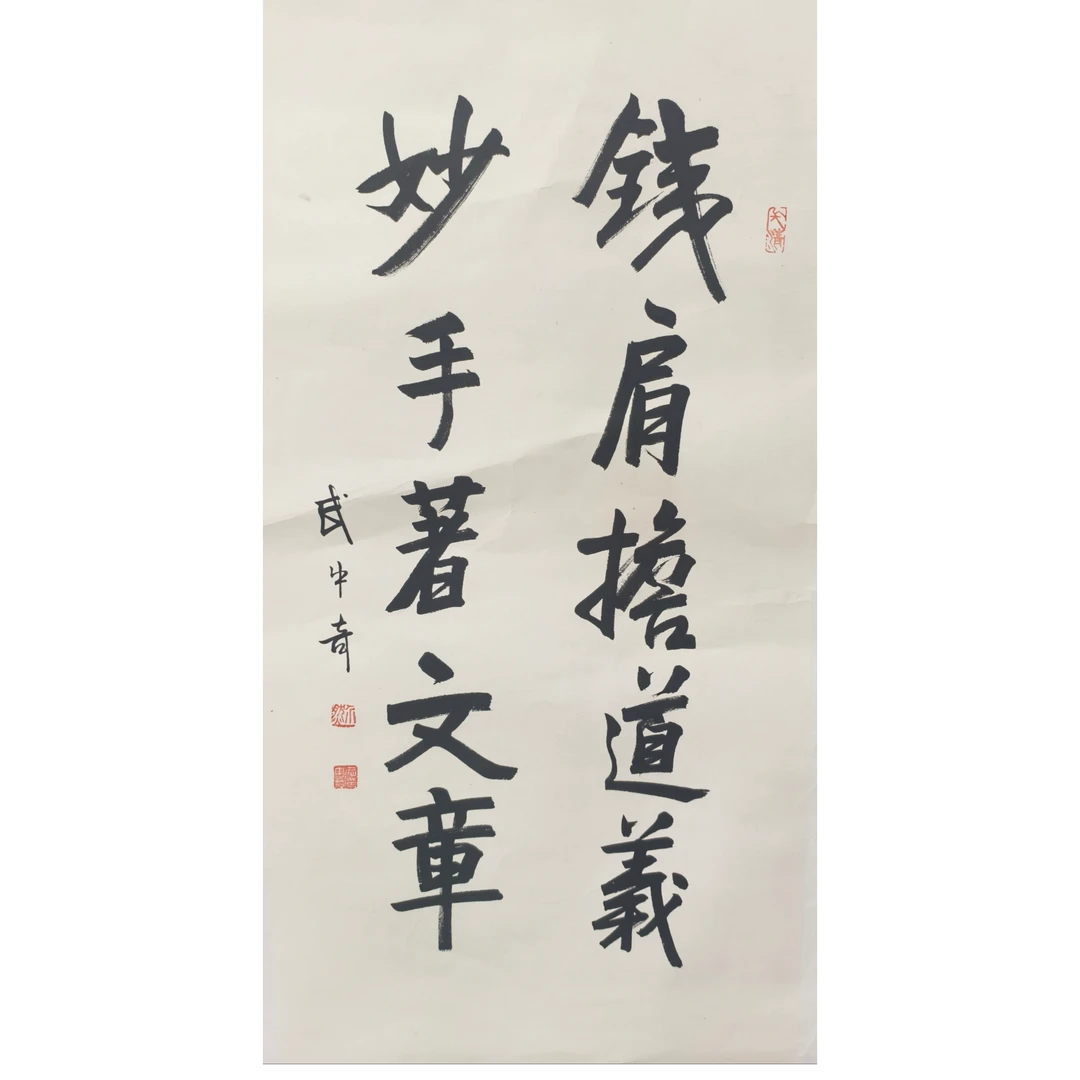 鐵肩擔道義
妙手著文章
武中奇